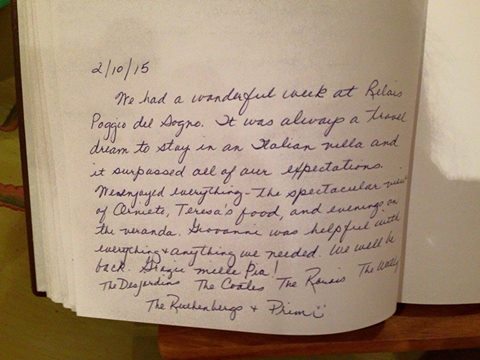 2/10/15
We had a wonderful week at Relais
Poggio del Sogno. It was always a travel
dream to stay in an Italian villa and
it surpassed all of our expectations.
We enjoyed everything - the spectacular view
of Orvieto, Teresa's food, and evenings on
the veranda. Giovanni was helpful with
everything & anything we needed. We will be
back. Grazie mille Pia!
The Desjardins The Coales The The
The Ruthenbergs + Prim